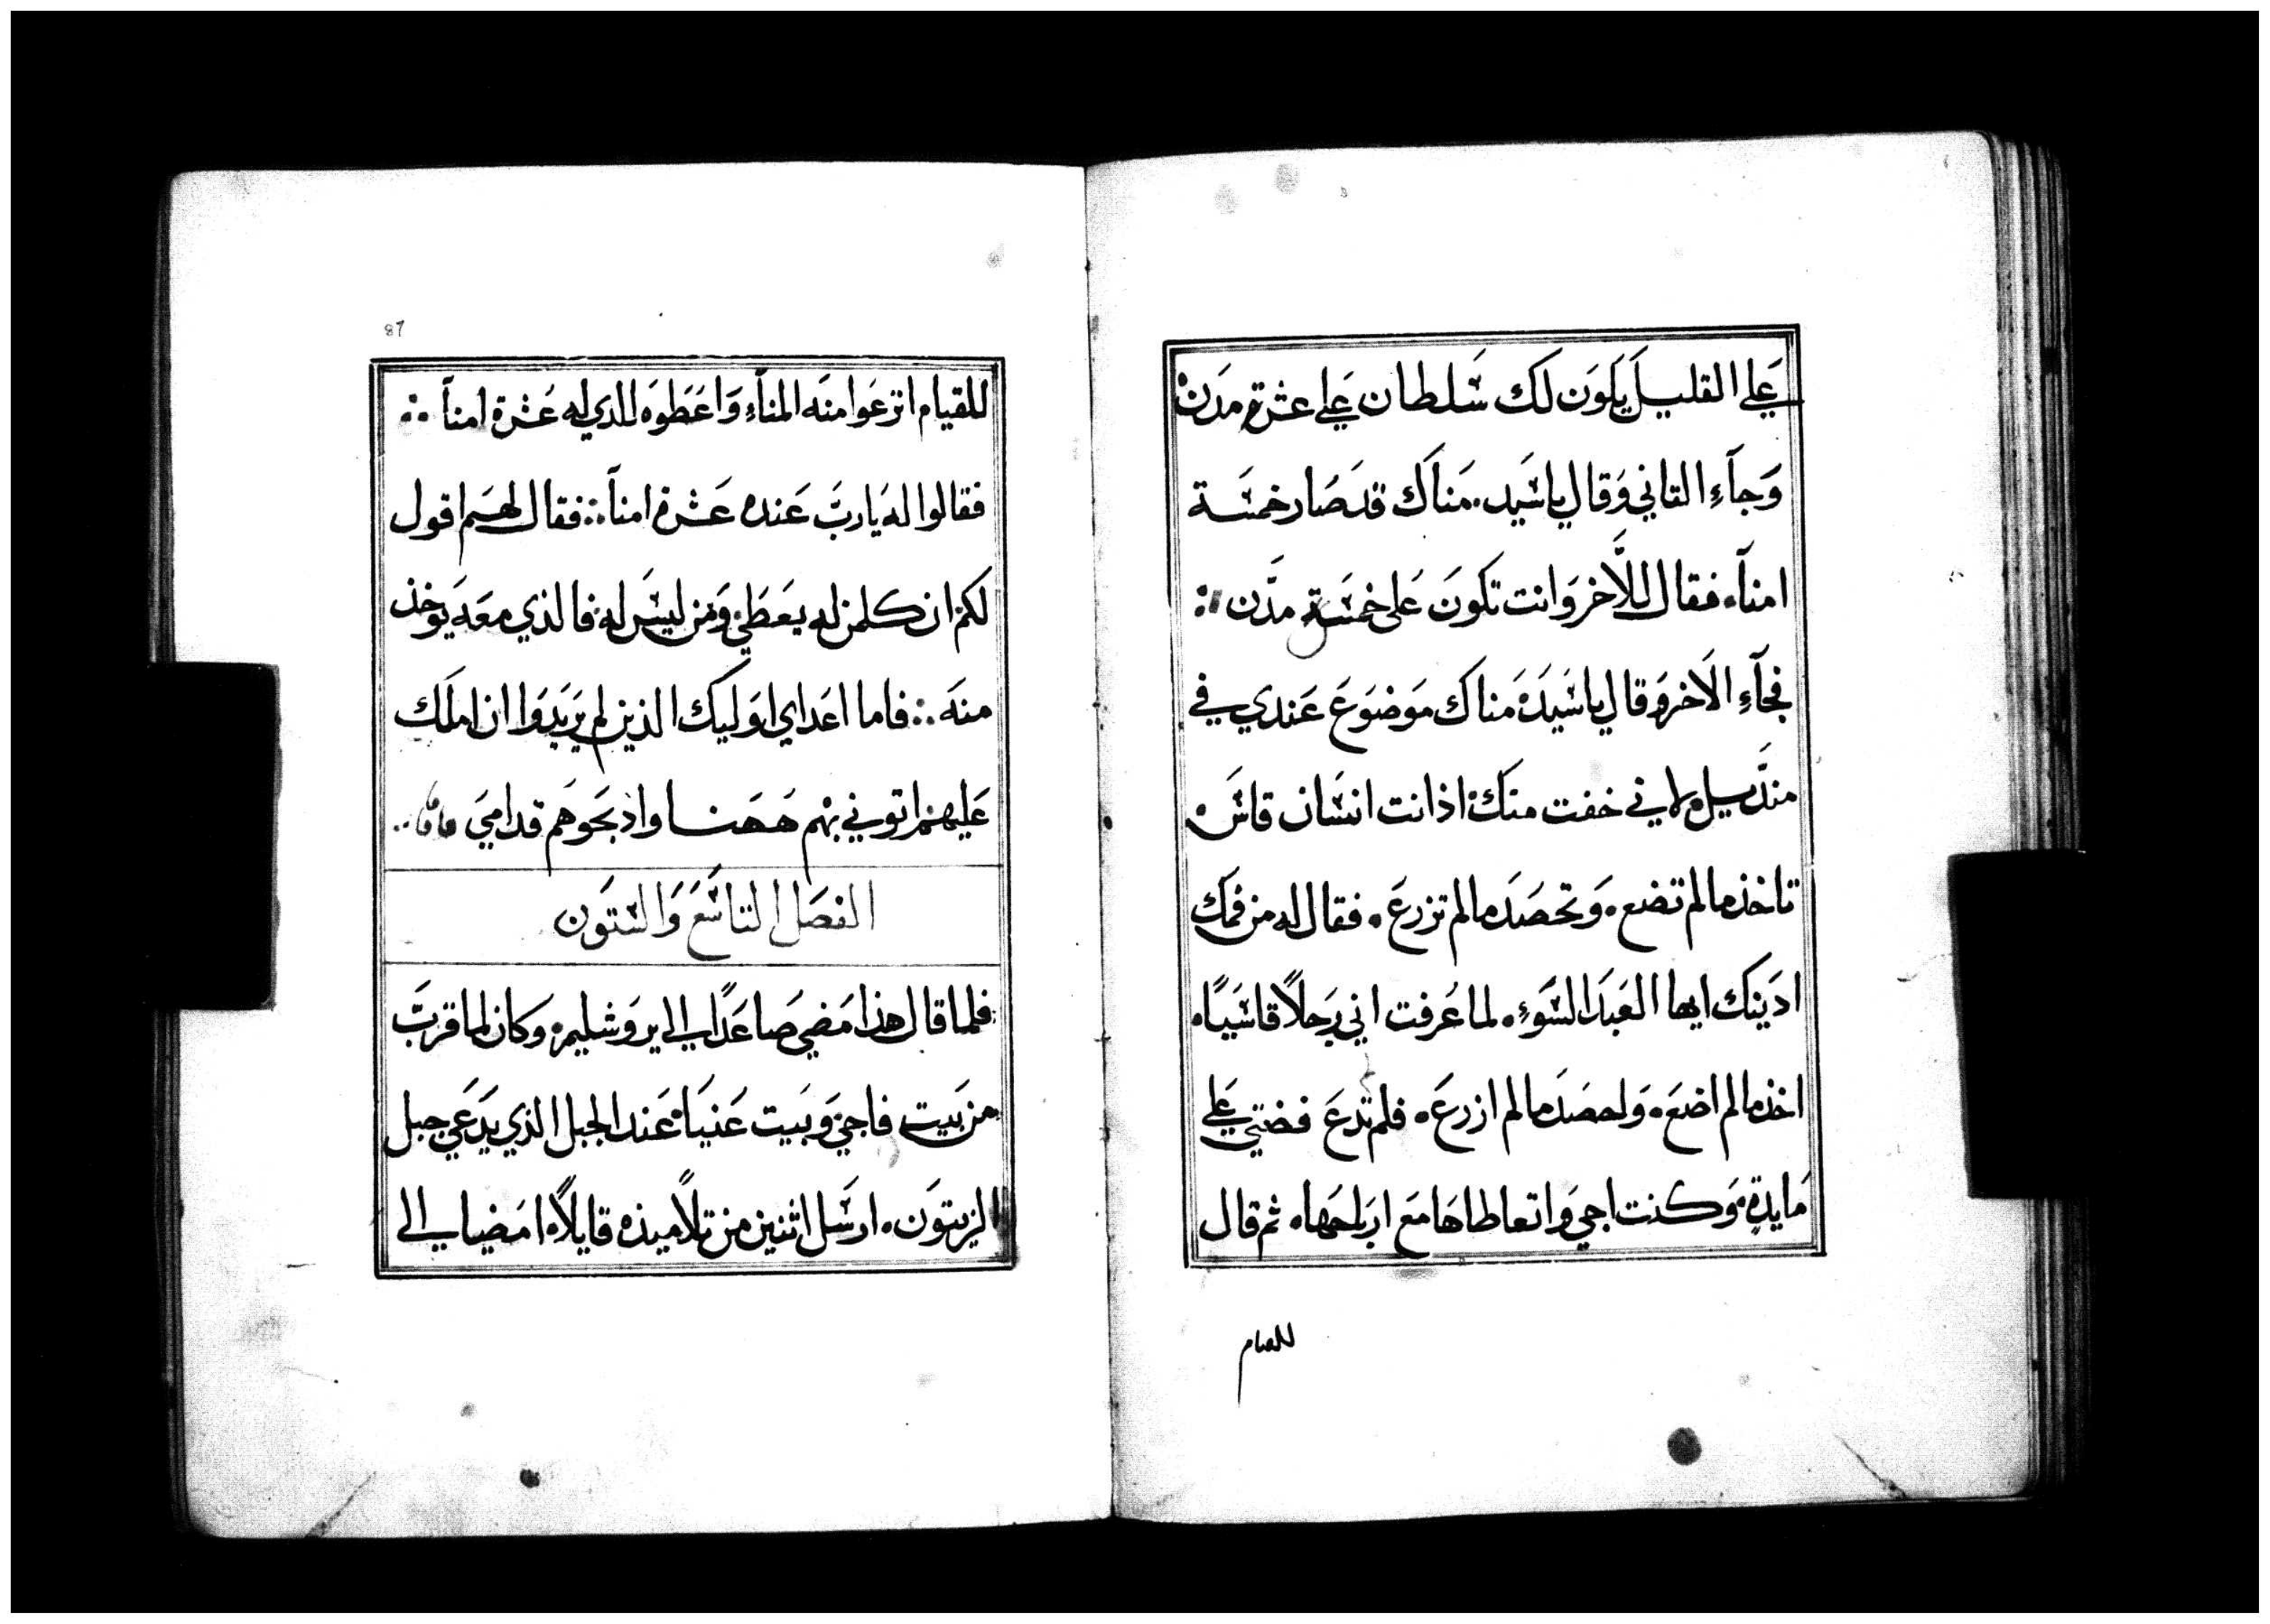 علي القليل يكون لك سلطان علي عشرة مدن
وجآء التاني وقال ياسيد. مناك قد صار خمسة
امنآء. فقال للآخر وانت تكون على خمسة مدن ::
فجآء الاخر وقال ياسيده مناك موضوع عندي في
منديل لاني خفت منك اذ انت انسان قاس
تاخذ ما لم تضع. وتحصد ما لم تزرع. فقال له من فمك
ادينك ايها العبد السوء. لما عرفت اني رجلاً قاسياً.
اخذ ما لم اضع. ولحصد ما لم ازرع. فلم تدع فضتي علي
مايدة وكنت اجي واتعاطاها مع ارباحها. ثم قال
للقيام
87
للقيام انزعوا منه المنآء واعطوه للدي له عشرة امنآ ∴
فقالوا له يارب عنده عشرة امنآ :: فقال لهم اقول
لكم ان كلمن له يعطي ومن ليس له فالذي معه يوخذ
منه :: فاما اعداي اوليك الذين لم يريدوا ان املك
عليهم اتوني بهم ههنا واذبحوهم قدامي
الفصل التاسع والستون
فلما قال هذا مضي صاعداً الي يروشليم. وكان لما قرب
من بيت فاجي وبيت عنيا عند الجبل الذي يدعي جبل
الزيتون. ارسل اثنين من تلاميذه قايلاً. امضيا الي